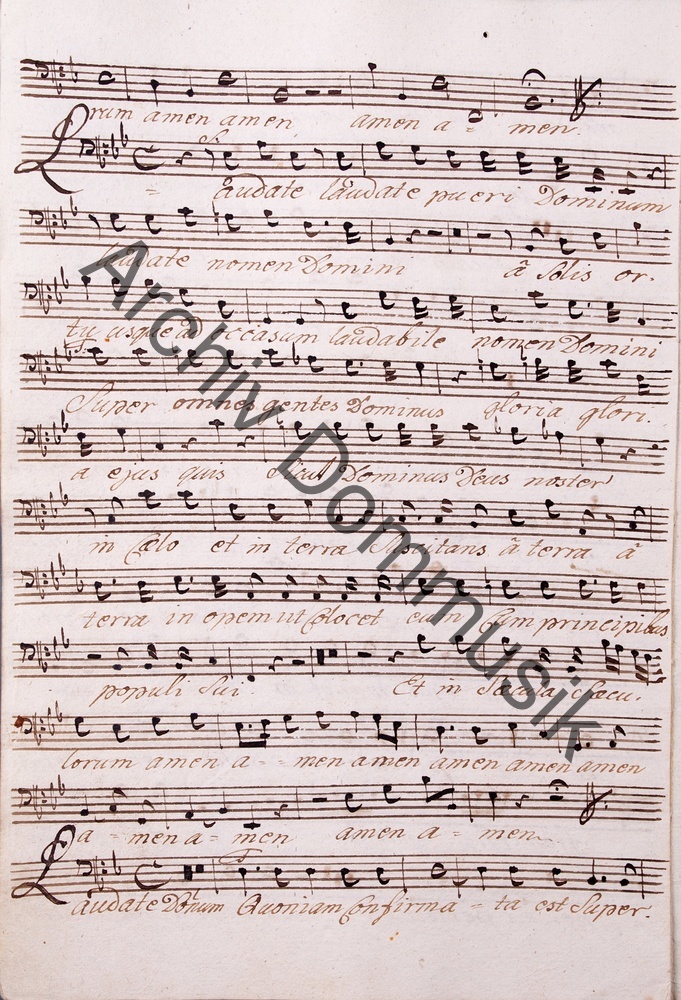 rum amen amen amen a = men.
Laudate laudate pueri Dominum
laudate nomen Domini à Solis or.
tu usque ad occasum laudabile nomen Domini
Super omnes gentes Dominus gloria glori.
a ejus quis sicut Dominus Deus noster
in Cælo et in terra Suscitans à terra à
terra inopem ut Colocet eum Cum principibus
populi Sui. Et in Sæcula Sæcu.
lorum amen a - - men amen amen amen amen
a = men a = men amen a = men
Laudate Dom̄um Quoniam Confirma = ta est Super.
Archiv Dommusik